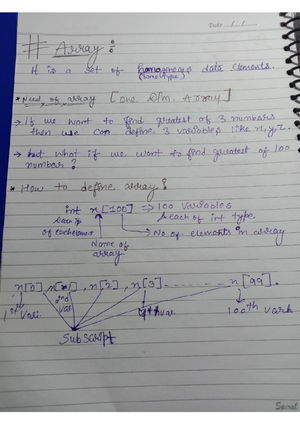 Date / /
# Array:
It is a set of homogeneous data elements.
(same type)
* Need of array [One Dim. Array]
→ If we want to find greatest of 3 numbers
then we can define 3 variables like x, y, z.
→ but what if we want to find greatest of 100
number?
* How to define array?
int x[100] ⇒ 100 variables
& each of int type
of each
No of elements in array
Name of
array
x[0], x[1], x[2], x[3] ........ x[99].
1st Vari.
2nd
var
4th var
100th
Subscript